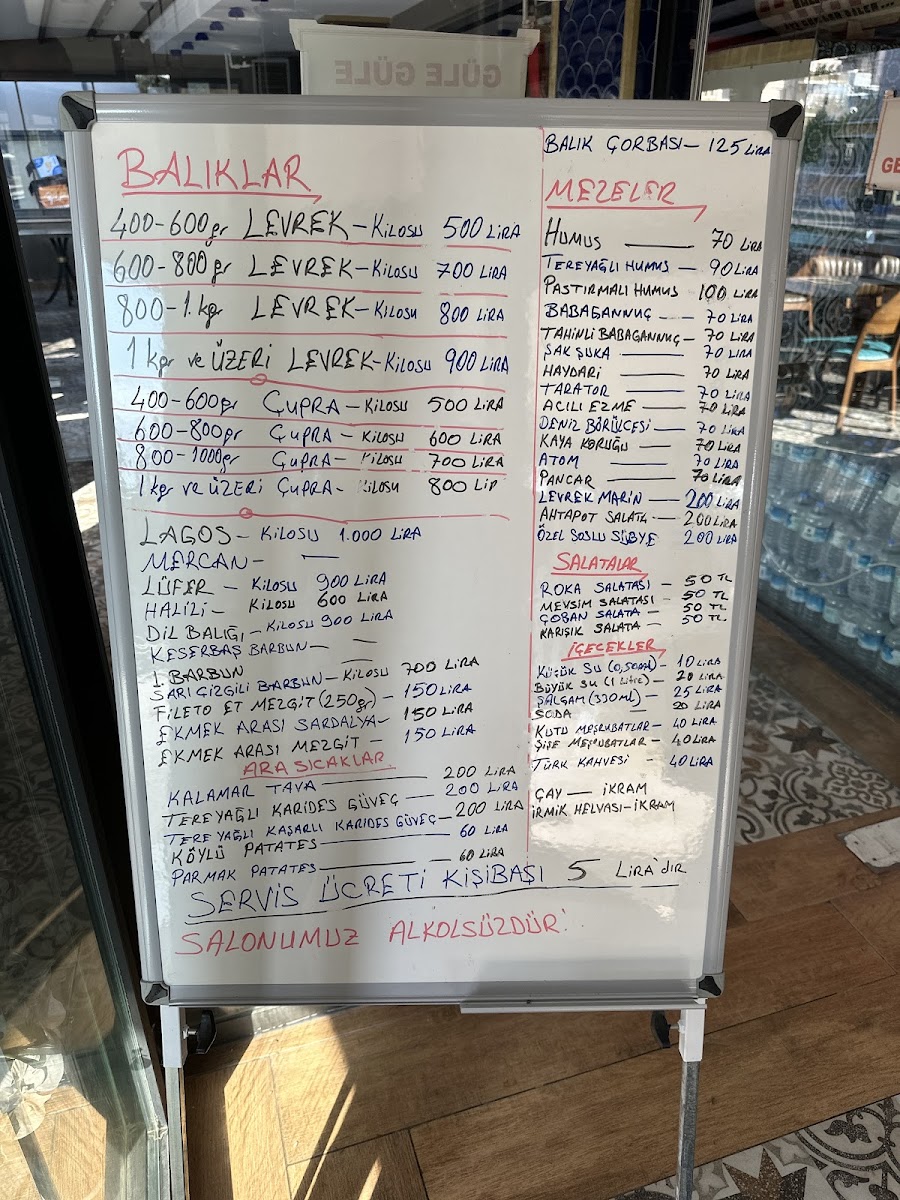 GÜLE GÜLE
BALIKLAR
400-600gr LEVREK-KiLOSU 500 LiRA
600-800gr LEVREK-KiLOSU 700 LiRA
800-1.kgr LEVREK-KiLOSU 800 LiRA
1 kgr ve ÜZERİ LEVREK-KiLOSU 900 LiRA
400-600gr ÇUPRA-KiLOSU 500 LiRA
600-800gr ÇUPRA-KiLOSU 600 LiRA
800-1000gr ÇUPRA-KiLOSU 700 LiRA
1 kgr ve ÜZERİ ÇUPRA-KiLOSU 800 LiR
LAGOS-KiLOSU 1.000 LİRA
MERCAN-
LÜFER-KiLOSU 900 LiRA
HALİLİ-KiLOSU 600 LiRA
DİL BALIĞI-KiLOSU 900 LİRA
KESERBAŞ BARBUN-
1. BARBUN
SARI ÇİZGİLİ BARBUN-KiLOSU 700 LİRA
FİLETO ET MEZGİT (250gr)-150 LİRA
EKMEK ARASI SARDALYA-150 LİRA
EKMEK ARASI MEZGİT-150 LİRA
ARA SICAKLAR
KALAMAR TAVA 200 LİRA
TEREYAĞLI KARİDES GÜVEÇ-200 LİRA
TEREYAĞLI KAŞARLI KARİDES GÜVEÇ-200 LİRA
KÖYLÜ PATATES 60 LİRA
PARMAK PATATES 60 LİRA
BALIK ÇORBASI-125 LİRA
MEZELER
HUMUS 70 LİRA
TEREYAĞLI HUMUS-90 LİRA
PASTIRMALI HUMUS 100 LİRA
BABAGANNUÇ-70 LİRA
TAHİNLİ BABAGANNUÇ-70 LİRA
ŞAKŞUKA 70 LİRA
HAYDARİ 70 LİRA
TARATOR 70 LİRA
ACILI EZME 70 LİRA
DENİZ BÖRÜLCESİ-70 LİRA
KAYA KORUĞU 70 LİRA
ATOM 70 LİRA
PANCAR 70 LİRA
LEVREK MARİN-200 LİRA
AHTAPOT SALATA-200 LİRA
ÖZEL SOSLU SÜBYE 200 LİRA
SALATALAR
ROKA SALATASI-50 TL
MEVSİM SALATASI-50 TL
ÇOBAN SALATA-50 TL
KARIŞIK SALATA-50 TL
İÇECEKLER
KÜÇÜK SU (0,50ml)-10 LİRA
BÜYÜK SU (1 Litre)-20 LİRA
ŞALGAM (330ml)-25 LİRA
SODA-20 LİRA
KUTU MEŞRUBATLAR-40 LİRA
ŞİŞE MEŞRUBATLAR-40 LİRA
TÜRK KAHVESİ-40 LİRA
ÇAY-İKRAM
İRMİK HELVASI-İKRAM
SERVİS ÜCRETİ KİŞİBAŞI 5 LİRA'DIR
SALONUMUZ ALKOLSÜZDÜR